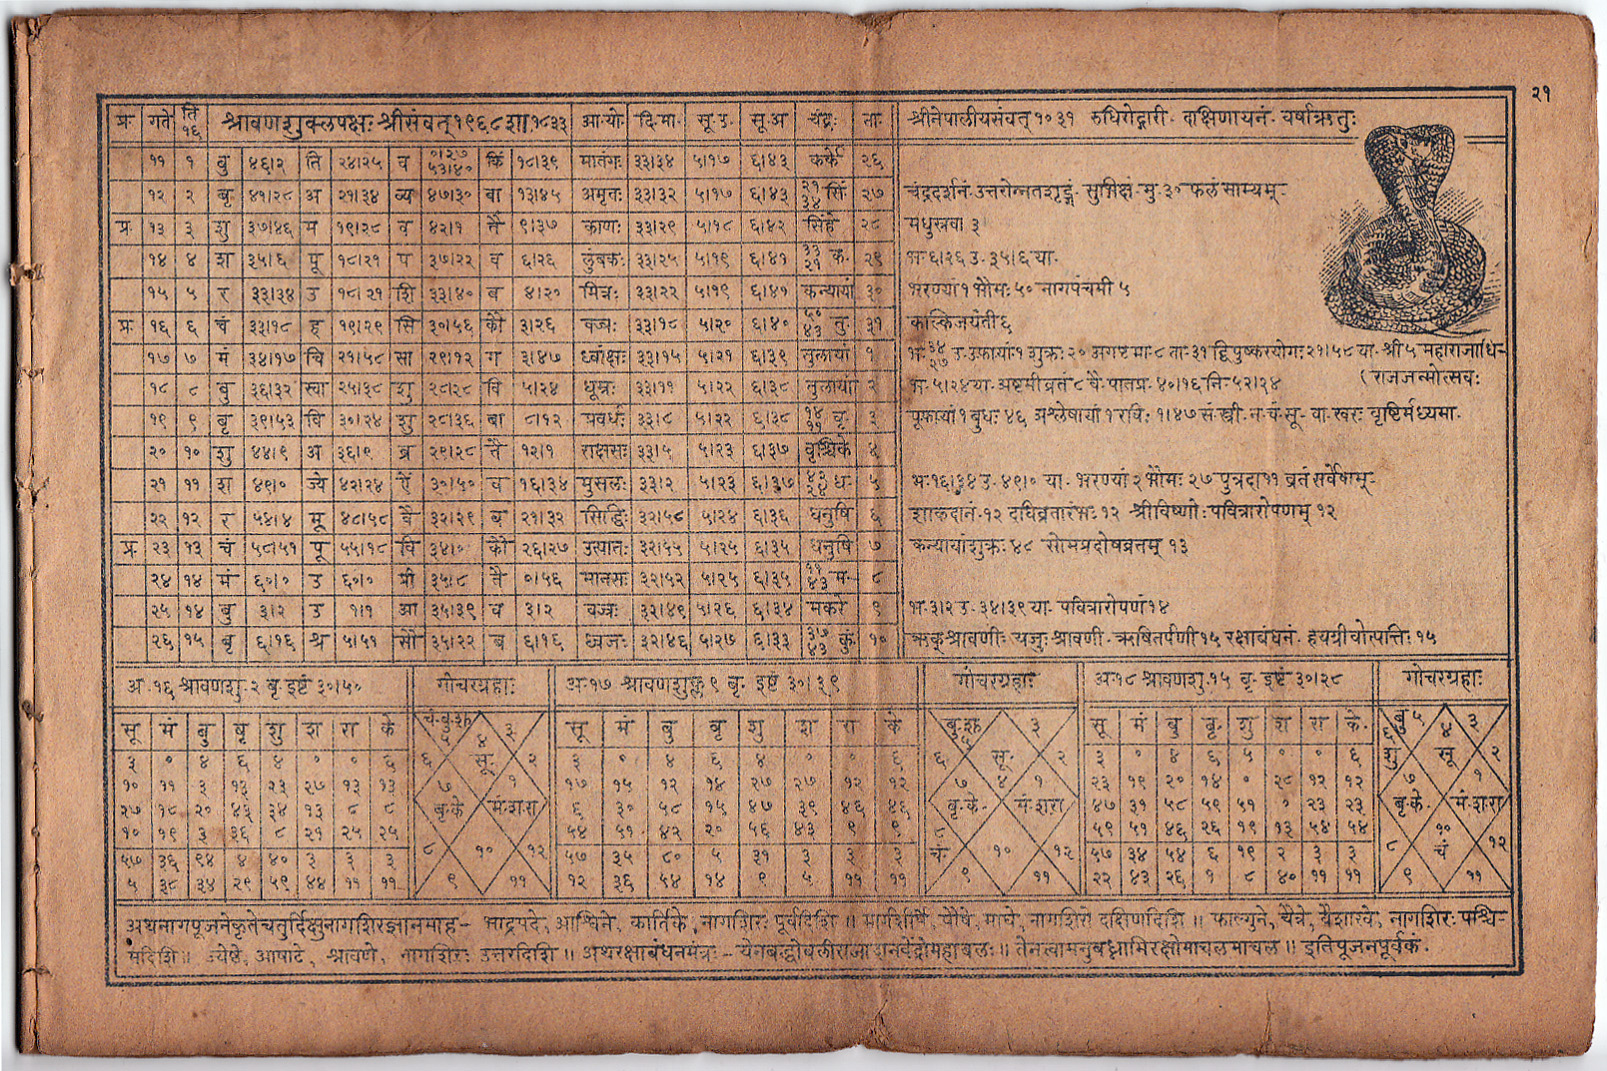 २१
प्र· गते ति १६ श्रावणशुक्लपक्षः श्रीसंवत् १९६८ शा १८३३ आ·यो· दि·मा· सू·उ· सू·अ चंद्रः ता· श्रीनेपालीयसंवत् १०३१ रुधिरोद्गारी· दाक्षिणायनं· वर्षाऋतुः
११ १ बु ४६।२ ति २४।२५ व ०।२७ ५३।४० किं १८।३९ मातंगः ३३।३४ ५।१७ ६।४३ कर्के २६
१२ २ बृ ४१।२८ अ २१।३४ व्य ४७।३० बा १३।४५ अमृतः ३३।३२ ५।१७ ६।४३ २१ ३४ सिं २७ चंद्रदर्शनं· उत्तरोन्नतशृङ्गं· सुभिक्षं· मु· ३० फलं साम्यम्-
प्र· १३ ३ शु ३७।४६ म १९।२८ व ४२।१ तै ९।३७ काणः ३३।२९ ५।१८ ६।४२ सिंहे २८ मधुस्रवा ३
१४ ४ श ३५।६ पू १८।२१ प ३७।२२ व ६।२६ लुंबकः ३३।२५ ५।१९ ६।४१ ३३ २१ क· २९ भ· ६।२६ उ· ३५।६ या·
१५ ५ र ३३।३४ उ १८।२१ शि ३३।४० ब ४।२० मित्रः ३३।२२ ५।१९ ६।४१ कन्यायां ३० भरण्यां १ भौमः ५० नागपंचमी ५
प्र· १६ ६ चं ३३।१८ ह १९।२९ सि ३०।५६ कौ ३।२६ वज्रः ३३।१८ ५।२० ६।४० ५० ४३ तु· ३१ कल्किजयंती ६
१७ ७ मं ३४।१७ चि २१।५८ सा २९।१२ ग ३।४७ ध्वांक्षः ३३।१५ ५।२१ ६।३९ तुलायां १ भ· ३४ २७ उ· उफायां १ शुक्रः २० अगष्ट मा· ८ ता· ३१ द्विपुष्करयोगः २१।५८ या· श्री ५ महाराजाधि-
१८ ८ बु ३६।३२ स्वा २५।३८ शु २८।२८ वि ५।२४ धूम्रः ३३।११ ५।२२ ६।३८ तुलायां २ भ· ५।२४ या· अष्टमीव्रतं ८ वै· पातप्र· ४०।१६ नि· ५२।२४ ( राजजन्मोत्सवः
१९ ९ बृ ३९।५३ वि ३०।२४ शु २८।३६ बा ८।१२ प्रवर्धः ३३।८ ५।२२ ६।३८ १४ ११ वृ· ३ पूफायां १ बुधः ४६ अश्लेषायां १ रविः १।४७ सं· स्त्री· न· चं· सू· वा· खरः वृष्टिर्मध्यमा·
२० १० शु ४४।९ अ ३६।९ ब्र २९।२८ तै १२।१ राक्षसः ३३।५ ५।२३ ६।३७ वृश्चिके ४
२१ ११ श ४९।० ज्ये ४२।२४ ऐं ३०।५० व १६।३४ मुसलः ३३।२ ५।२३ ६।३७ ४३ २४ ध· ५ भ· १६।३४ उ· ४९।० या· भरण्यां २ भौमः २७ पुत्रदा ११ व्रतं सर्वेषाम्-
२२ १२ र ५४।४ मू ४८।५८ वै ३२।३९ ब २१।३२ सिद्धिः ३२।५८ ५।२४ ६।३६ धनुषि ६ शाकदानं· १२ दधिव्रतारंभः १२ श्रीविष्णोः पवित्रारोपणम् १२
प्र· २३ १३ चं ५८।५१ पू ५५।१८ वि ३४।० कौ २६।२७ उत्पातः ३२।५५ ५।२५ ६।३५ धनुषि ७ कन्यायां शुक्रः ४८ सोमप्रदोषव्रतम् १३
२४ १४ मं ६०।० उ ६०।० प्री ३५।८ तै ०।५६ मानसः ३२।५२ ५।२५ ६।३५ ११ ४३ म· ८
२५ १४ बु ३।२ उ १।१ आ ३५।३९ व ३।२ वज्रः ३२।४९ ५।२६ ६।३४ मकरे ९ भ· ३।२ उ· ३४।३९ या· पवित्रारोपणं १४
२६ १५ बृ ६।१६ श्र ५।५१ सौ ३५।२२ ब ६।१६ ध्वजः ३२।४६ ५।२७ ६।३३ ३७ ४३ कुं· १० ऋक् श्रावणीः यजुः श्रावणी· ऋषितर्पणी १५ रक्षाबंधनं· हयग्रीवोत्पत्तिः १५
अ· १६ श्रावणशु· २ बृ· इष्टं ३०।५० गोचरग्रहाः अ· १७ श्रावणशुक्ल ९ बृ· इष्टं ३०।३९ गोचरग्रहाः अ· १८ श्रावणशु· १५ बृ· इष्टं ३०।२८ गोचरग्रहाः
सू मं बु बृ शु श रा के चं· बु· शु ५ ४ ३ सू मं बु बृ शु श रा के बु· शु ५ ३ सू मं बु बृ· शु श रा के· बु ५ ४ ३
३ ० ४ ६ ४ ० ० ६ ६ सूः २ ३ ० ४ ६ ४ ० ० ६ ६ सू· २ ३ ० ४ ६ ५ ० ० ६ ६ शु सू २
१० ११ ३ १३ २३ २७ १३ १३ ७ १ १७ १५ १२ १४ २७ २७ १२ १२ ७ ४ १ २३ १९ २० १४ ० २८ १२ १२ ७ १
२७ १८ २० ४३ ३४ १३ ८ ८ बृ· के मं· श· रा ६ ३० ५८ १५ ४७ ३९ ४६ ४६ बृ· के· मं· श· रा ४७ ३१ ५८ ५९ ५१ १ २३ २३ बृ· के· मं· श· रा
१० १९ ३ ३६ ८ २१ २५ २५ ५४ ५१ ४२ २० ५६ ४३ ९ ९ ८ ५९ ५१ ४६ २६ १९ १३ ५४ ५४ १०
५७ ३६ ९४ ४ ४० ३ ३ ३ ८ १० १२ ५७ ३५ ८० ५ ३१ ३ ३ ३ चं· १० १२ ५७ ३४ ५४ ६ १९ २ ३ ३ ८ चं १२
५ ३८ ३४ २९ ५९ ४४ ११ ११ ९ ११ १२ ३६ ५४ १४ ९ ५ ११ ११ ९ ११ २२ ४३ २६ १ ८ ४० ११ ११ ९ ११
अथ नागपूजने कृते चतुर्दिक्षु नागशिरज्ञानमाह - भाद्रपदे, आश्विने, कार्तिके, नागशिरः पूर्वदिशि ॥ मार्गशीर्षे, पौषे, माघे, नागशिरो दक्षिणदिशि ॥ फाल्गुने, चैत्रे, वैशाखे, नागशिरः पश्चि-
मदिशि ॥ ज्येष्ठे, आषाढे, श्रावणे, नागशिरः उत्तरदिशि ॥ अथ रक्षाबंधनमंत्रः - येन बद्धो बली राजा दानवेंद्रो महाबलः ॥ तेन त्वामनुबध्नामि रक्षे मा चल मा चल ॥ इति पूजनपूर्वकं·